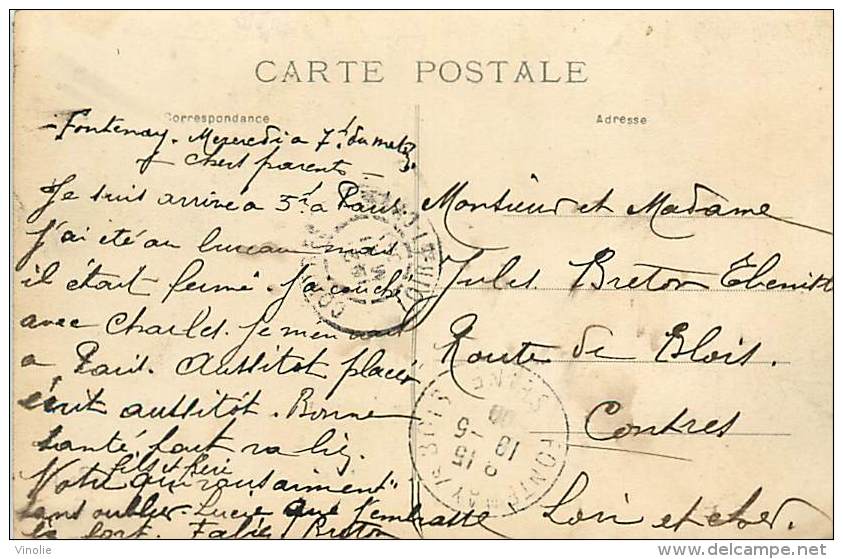 CARTE POSTALE
Correspondance
Fontenay. Mercredi a 7h du matin
chers parents
Je suis arrivé a 5h a Paris
J'ai été au bureau mais
il était fermé. J'ai couché
avec Charles. Je m'en vais
a Paris. Aussitot placé
écrit aussitôt. Bonne
santé tout va bien.
fils et frère
Votre qui vous aiment
sans oublier Lucie que J'embrasse
bien fort. Fabien Breton
Adresse
Monsieur et Madame
Jules Breton Ebeniste
Route de Blois.
Contres
Loir et cher.
CONTRES
LOIR-ET-CHER
FONTENAY-S-BOIS
SEINE
8 15
18 -5
08
Vinolie
http://www.delcampe.net